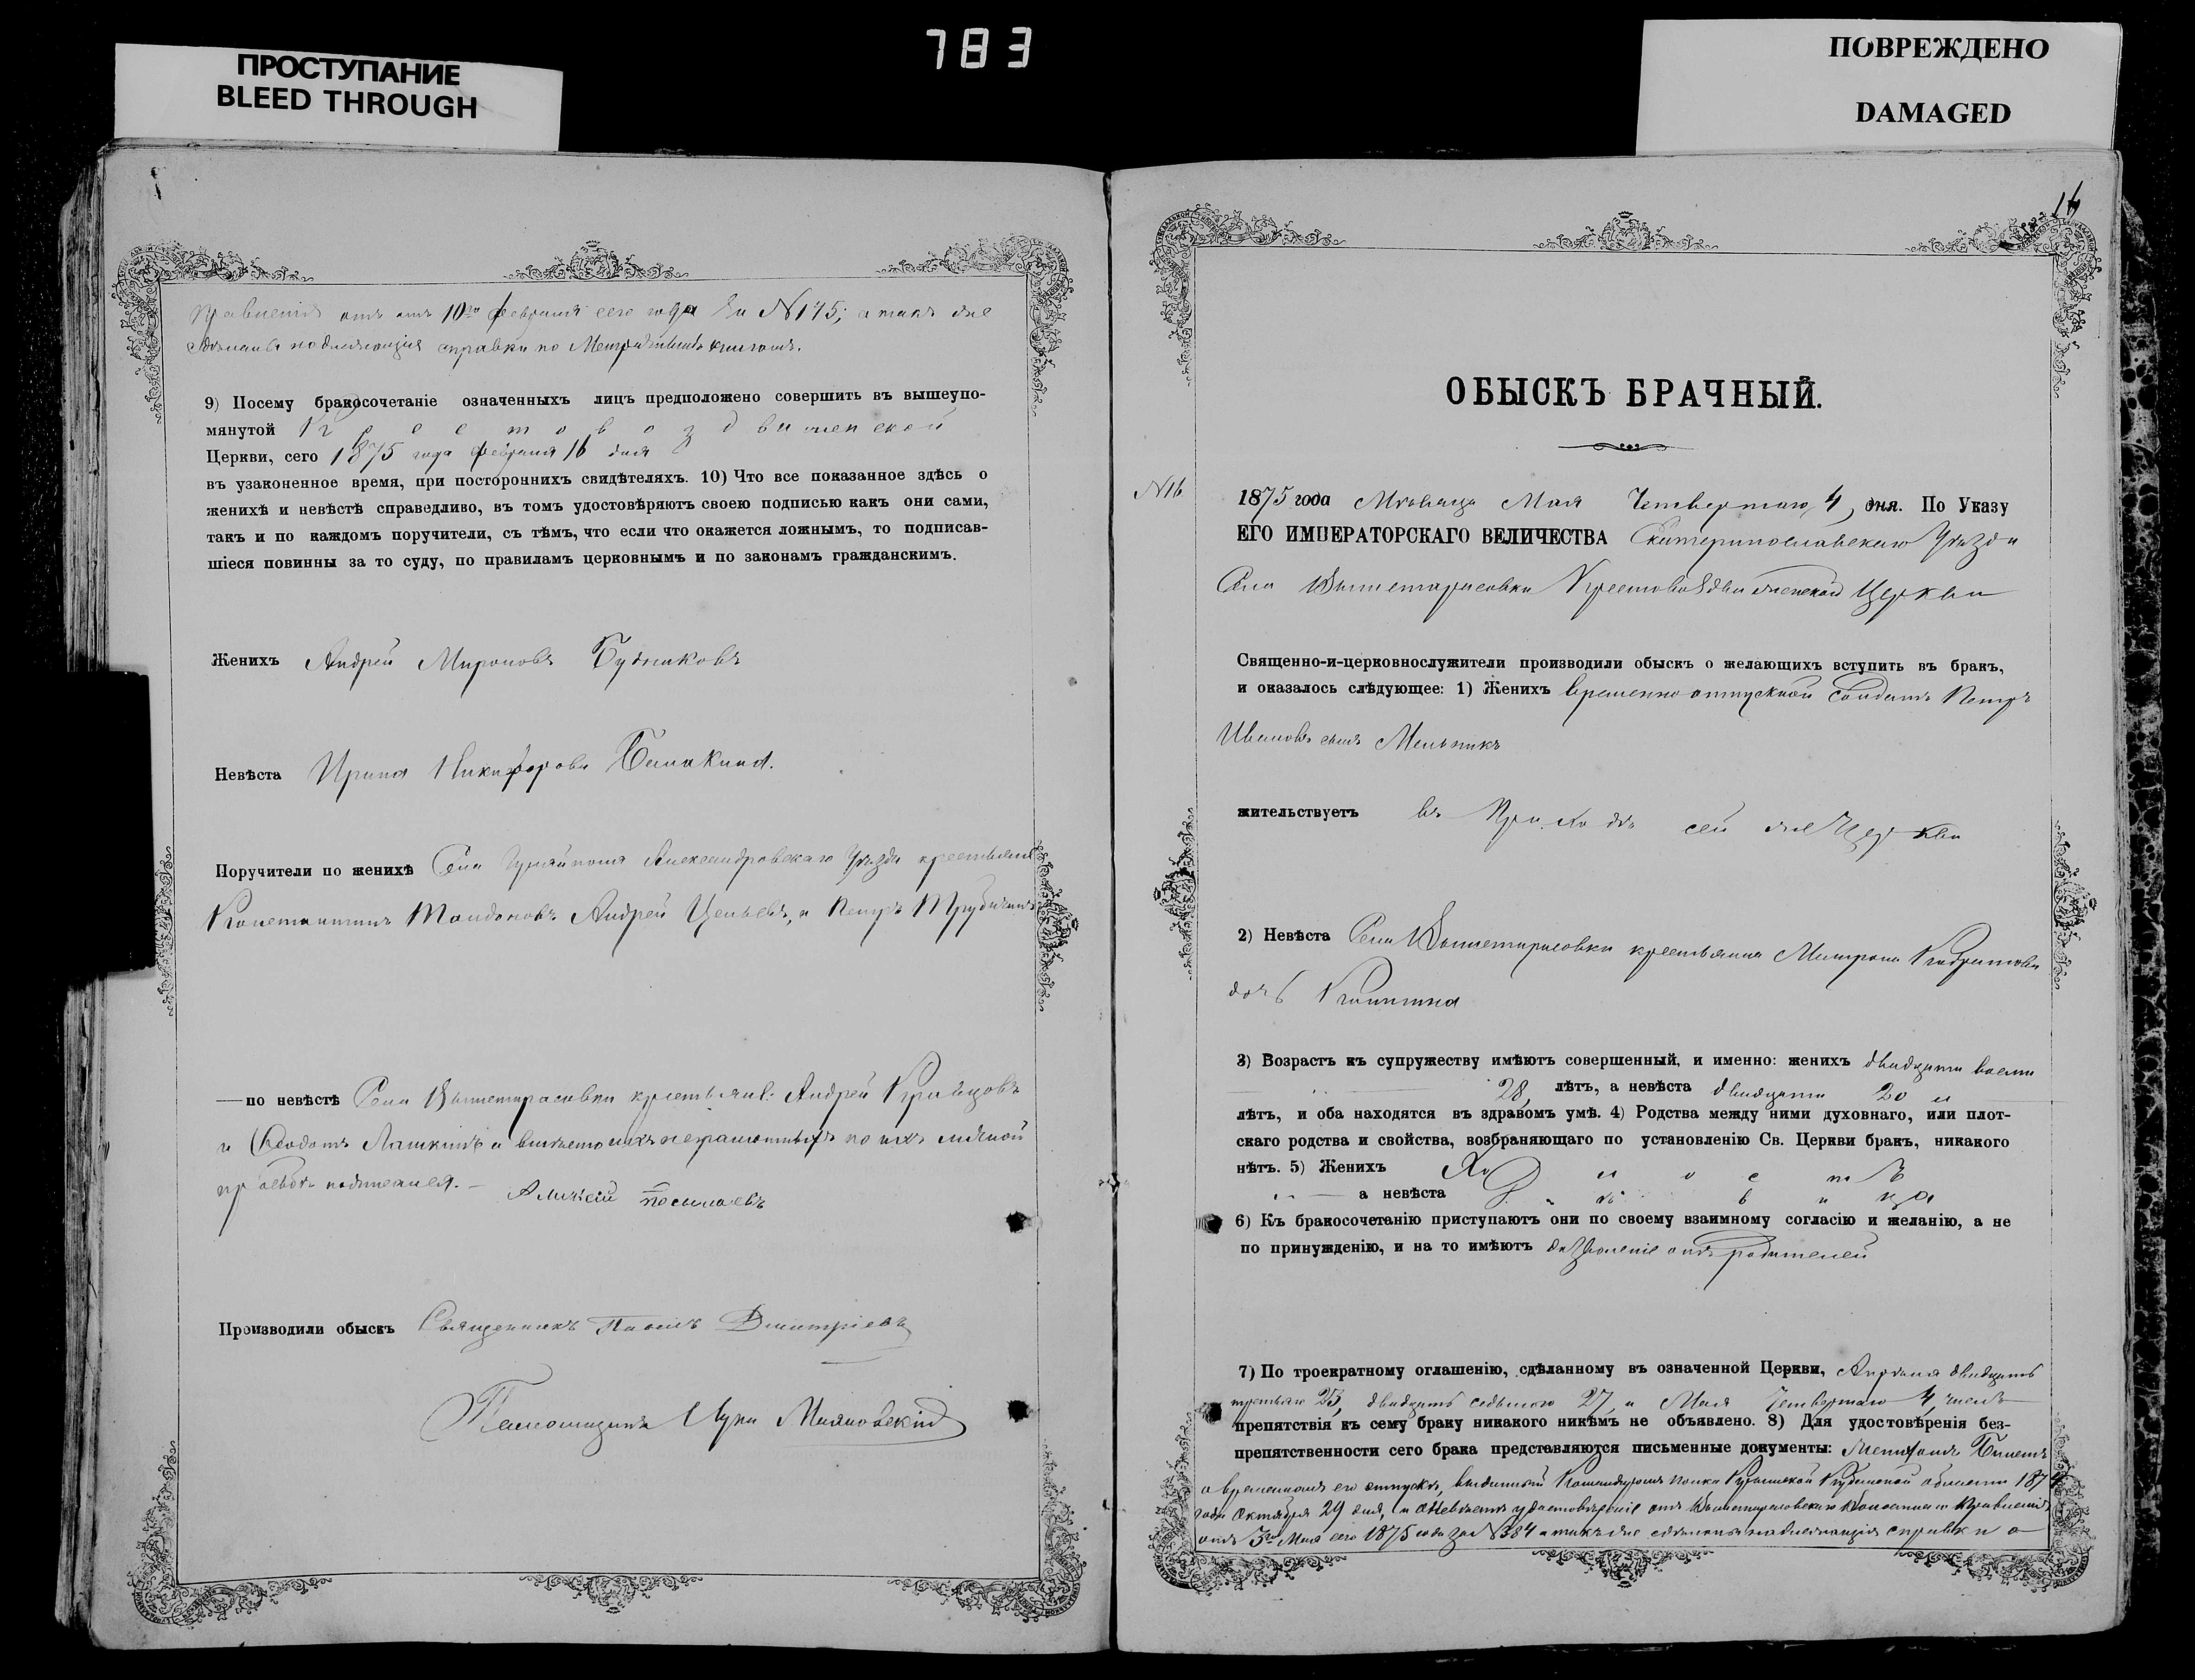 783
ПРОСТУПАНИЕ
BLEED THROUGH
ПОВРЕЖДЕНО
DAMAGED
Правленія отъ отъ 10го февраля сего года за №175; а такъ же
сдѣланы надлежащія справки по Метрическимъ книгамъ.
9) Посему бракосочетаніе означенныхъ лицъ предположено совершить въ вышеупо-
мянутой Крестовоздвиженской
Церкви, сего 1875 года февраля 16 дня
въ узаконенное время, при постороннихъ свидѣтеляхъ. 10) Что все показанное здѣсь о
женихѣ и невѣстѣ справедливо, въ томъ удостовѣряютъ своею подписью какъ они сами,
такъ и по каждомъ поручители, съ тѣмъ, что если что окажется ложнымъ, то подписав-
шіеся повинны за то суду, по правиламъ церковнымъ и по законамъ гражданскимъ.
Женихъ Андрей Мироновъ Будниковъ
Невѣста Ирина Никифорова
Поручители по женихѣ Села Александровскаго Уѣзда крестьяне
Константинъ Андрей и Петръ
— по невѣстѣ Села Вышетарасовки крестьяне: Андрей Кравцовъ
и Ѳеодотъ Лашкинъ а вмѣсто ихъ неграмотныхъ по ихъ личной
просьбѣ подписался. — Аликсѣй
Производили обыскъ Священникъ Павелъ Дмитріевъ
Луки
16
ОБЫСКЪ БРАЧНЫЙ.
№16
1875 года Мѣсяца Мая Четвертаго, 4, дня. По Указу
ЕГО ИМПЕРАТОРСКАГО ВЕЛИЧЕСТВА Екатеринославскаго Уѣзда
Села Вышетарасовки Крестовоздвиженской Церкви
Священно-и-церковнослужители производили обыскъ о желающихъ вступить въ бракъ,
и оказалось слѣдующее: 1) Женихъ временно отпускной солдатъ Петръ
Ивановъ сынъ Мельникъ
жительствуетъ въ Приходѣ сей же Церкви
2) Невѣста Села Вышетарасовки крестьянка Матрона Кодратова
дочь
3) Возрастъ къ супружеству имѣютъ совершенный, и именно: женихъ двадцати восьми
28, лѣтъ, а невѣста двадцати 20
лѣтъ, и оба находятся въ здравомъ умѣ. 4) Родства между ними духовнаго, или плот-
скаго родства и свойства, возбраняющаго по установленію Св. Церкви бракъ, никакого
нѣтъ. 5) Женихъ Холостъ
а невѣста Дѣвица
6) Къ бракосочетанію приступаютъ они по своему взаимному согласію и желанію, а не
по принужденію, и на то имѣютъ дозволеніе отъ родителей
7) По троекратному оглашенію, сдѣланному въ означенной Церкви, Апрѣля двадцать
третьяго 23, двадцать седьмого 27, и Мая Четвертаго 4, числъ
препятствія къ сему браку никакого никѣмъ не объявлено. 8) Для удостовѣренія без-
препятственности сего брака представляются письменные документы: Женихомъ Билетъ
о временномъ его отпускѣ, выданный Командиромъ полка Кубанской области 1874
года Октября 29 дня, а Невѣстѣ удостовѣреніе отъ Вышетарасовскаго Волостнаго Правленія
отъ 3го Мая сего 1875 года за №384 а такъ же сдѣланы надлежащія справки о